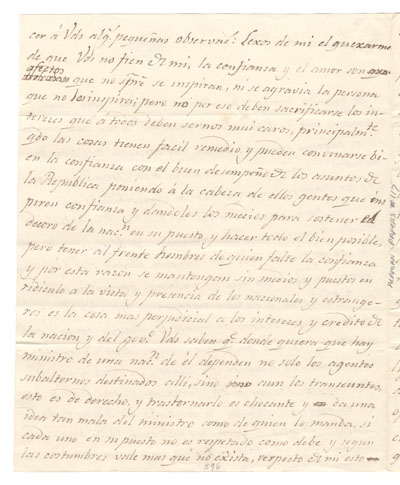 cer á Vds algˢ. pequeñas observacˢ. Lexos de mi el quexarme
de que Vds no fien de mi, la confianza y el amor son
afectos que no spre se inspiran, ni se agravia la persona
que no los inspira; pero no por eso deben sacrificarse los in-
tereses que á todos deben sernos mui caros, principalmᵗᵉ.
qdo las cosas tienen facil remedio y pueden convinarse bi-
en la confianza con el buen desempeño de los asuntos de
la Republica poniendo á la cabeza de ellos gentes que ins
piren confianza y dandoles los medios para sostener el
decoro de la nacⁿ. en su puesto, y hacer todo el bien posible,
pero tener al frente hombres de quien falte la confianza
y por esta razon se mantengan sin medios y puestos en
ridiculo a la vista y presencia de los nacionales y estrange-
ros es la cosa mas perjudicial a los intereses y credito de
la nacion y del govᵒ. Vds saben qᵉ. donde quiera que hay
ministro de una nacⁿ. de él dependen no solo los agentes
subalternos destinados alli, sino aun los transeuntes,
esto es de derecho, y trastornarlo es chocante y da una
idea tan mala del ministro como de quien lo manda, si
cada uno en su puesto no es respetado como debe y segun
las costumbres vale mas que no exista, respecto de mi esto
596